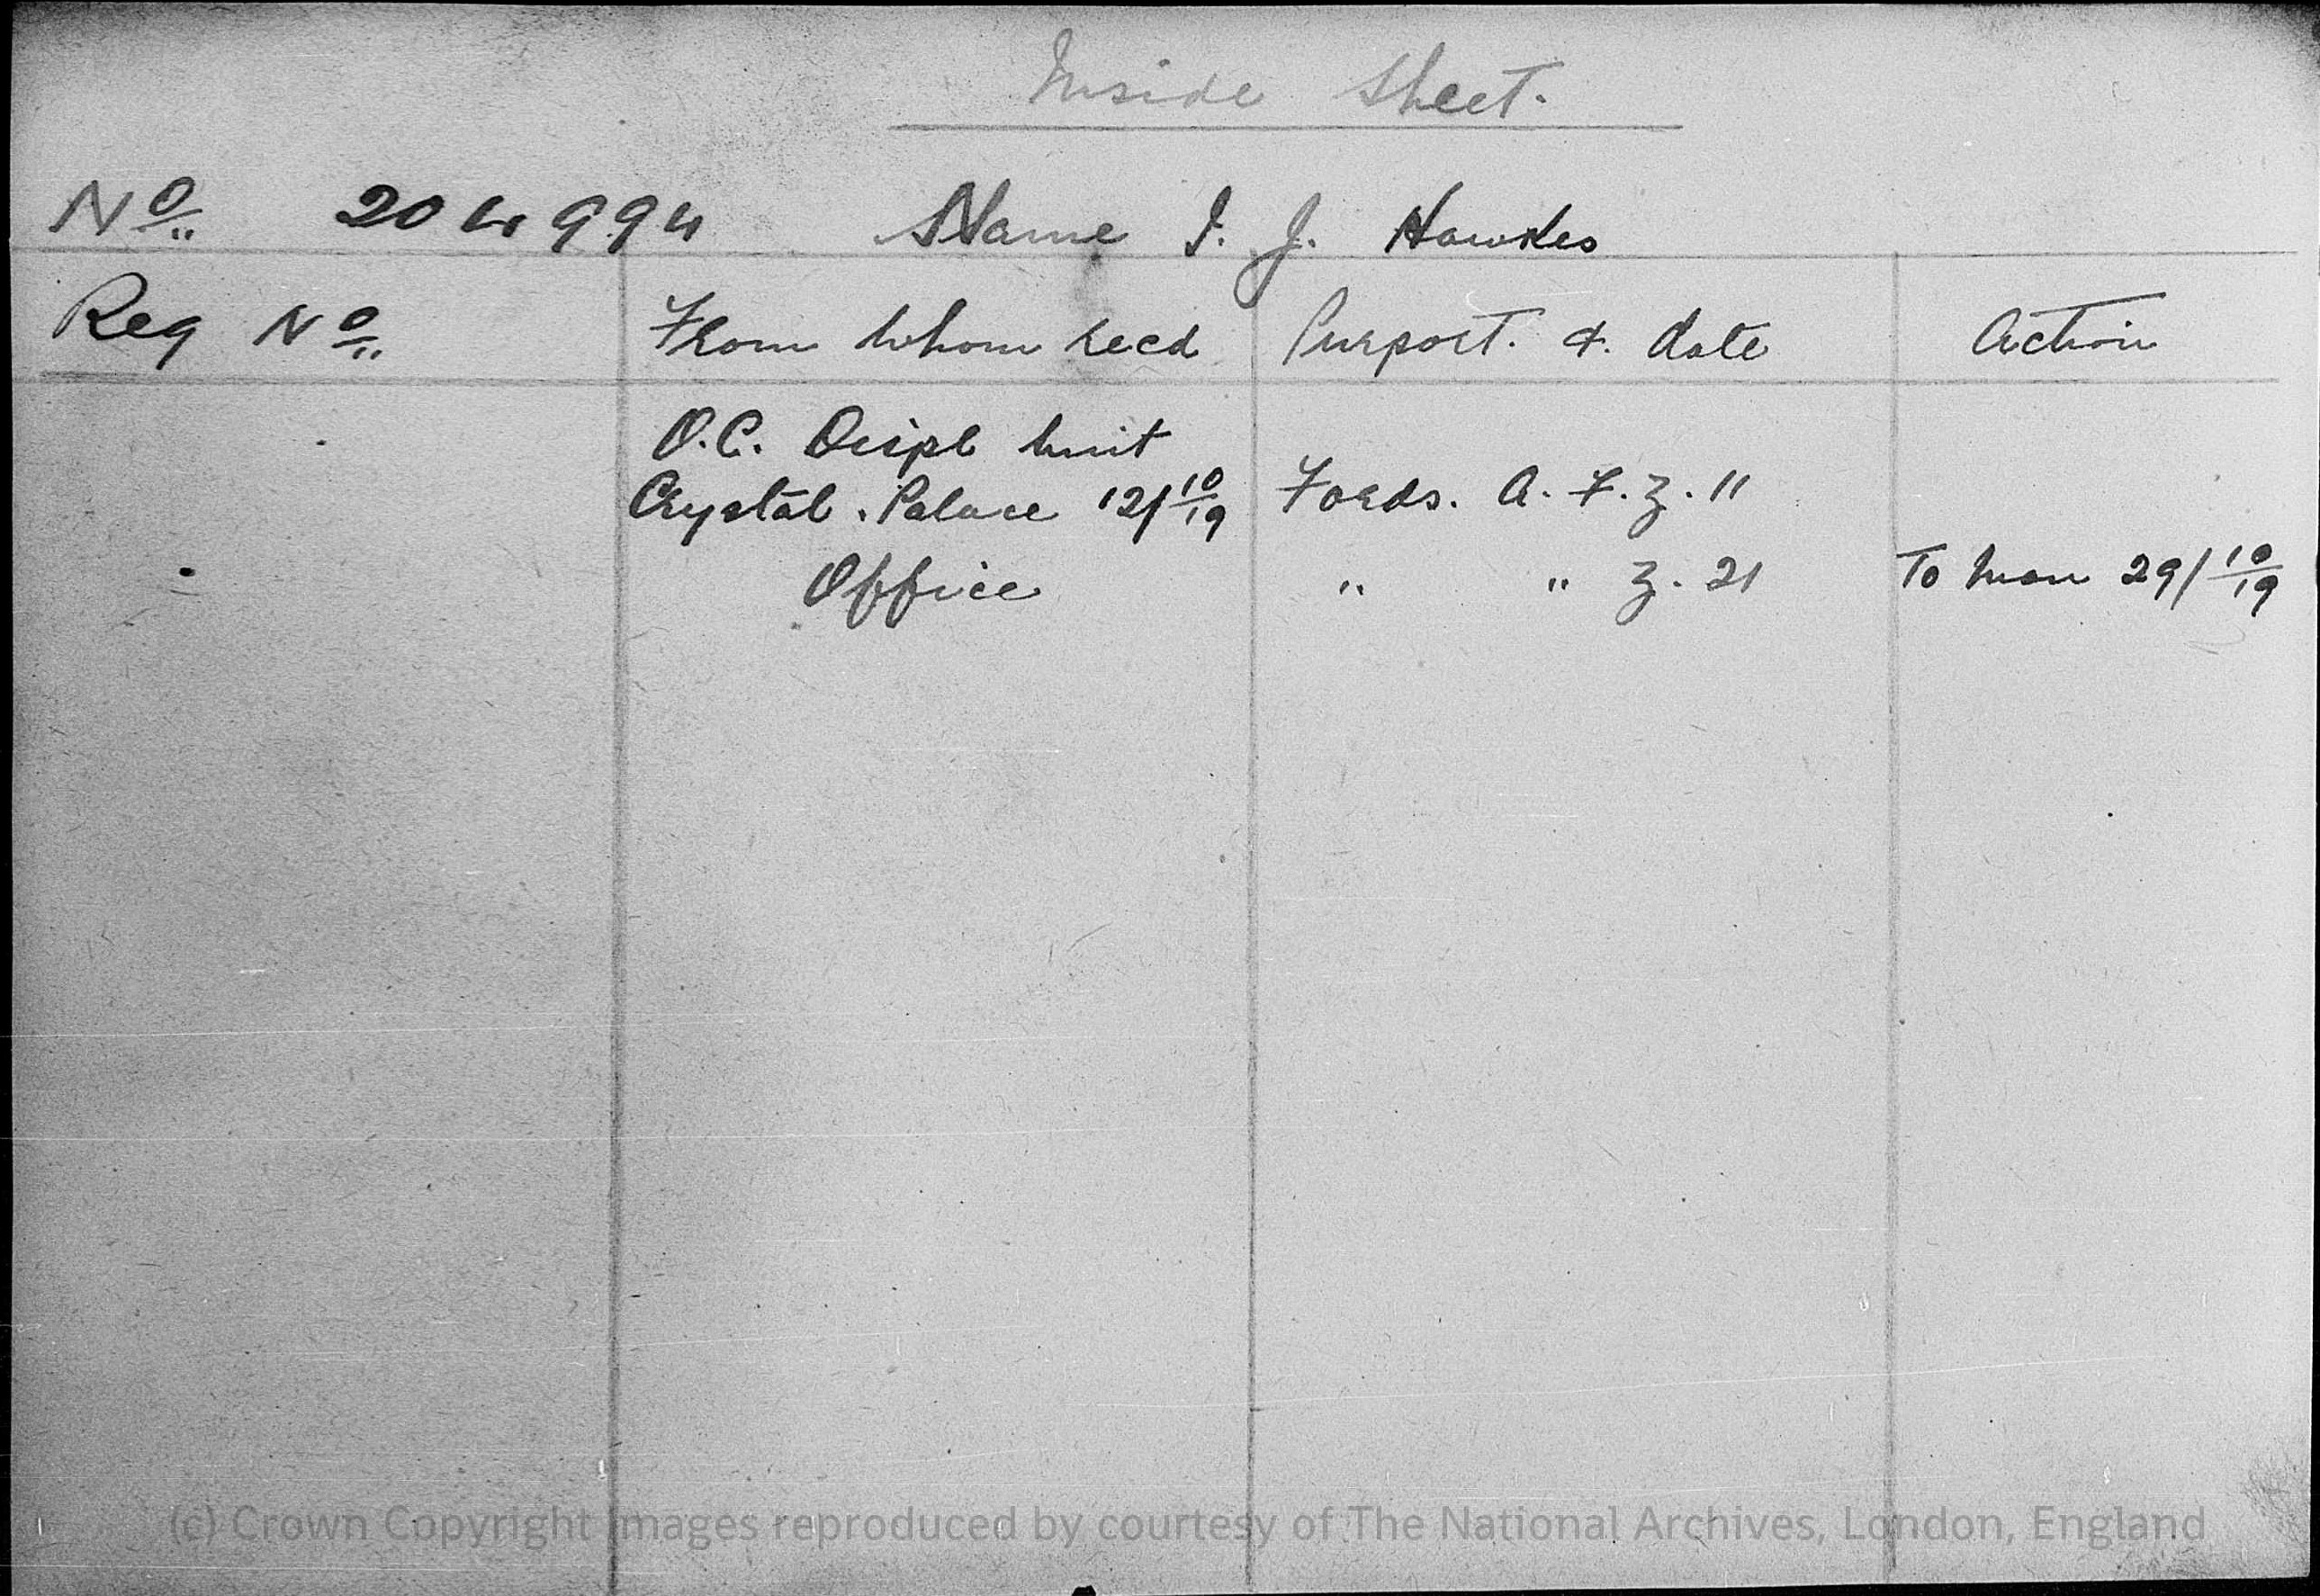 Inside Sheet.
No 204994 Name J. J. Hawkes
Reg No From whom recd Purport. &. date Action
O.C. Displ Unit
Crystal. Palace 12/10/19 Fords. A. F. Z. 11
Office " " Z. 21 To man 29/10/19
(c) Crown Copyright Images reproduced by courtesy of The National Archives, London, England